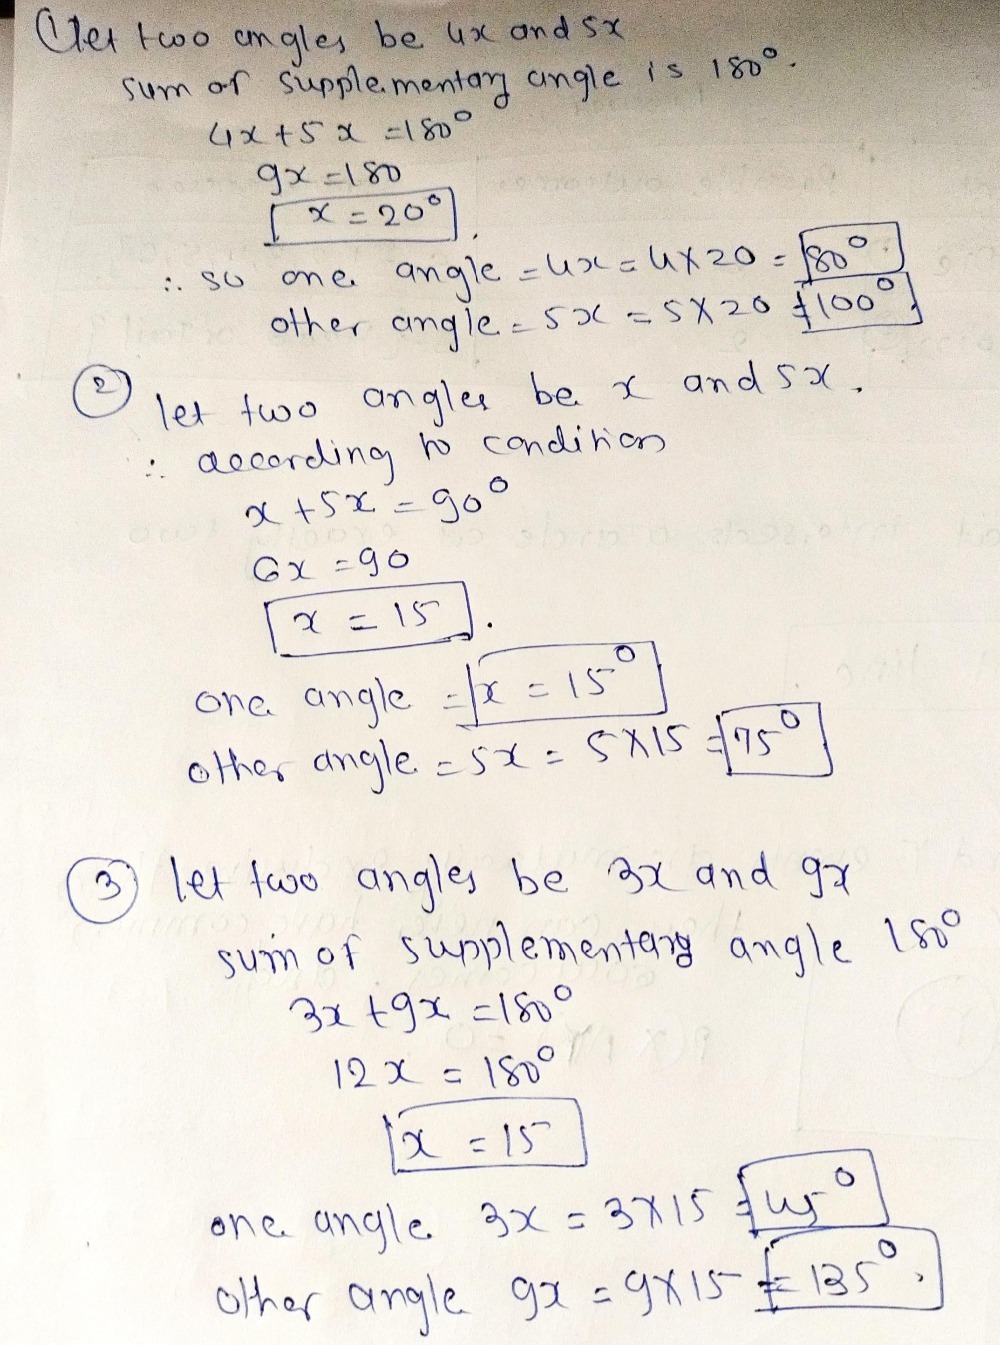 ① let two angles be 4x and 5x
sum of supplementary angle is 180°.
4x + 5x = 180°
9x = 180
x = 20°.
∴ so one angle = 4x = 4×20 = 80°
other angle = 5x = 5×20 = 100°.
② let two angles be x and 5x.
∴ according to condition
x + 5x = 90°
6x = 90
x = 15.
one angle = x = 15°
other angle = 5x = 5×15 = 75°
③ let two angles be 3x and 9x
sum of supplementary angle 180°
3x + 9x = 180°
12x = 180°
x = 15
one angle 3x = 3×15 = 45°
other angle 9x = 9×15 = 135°.